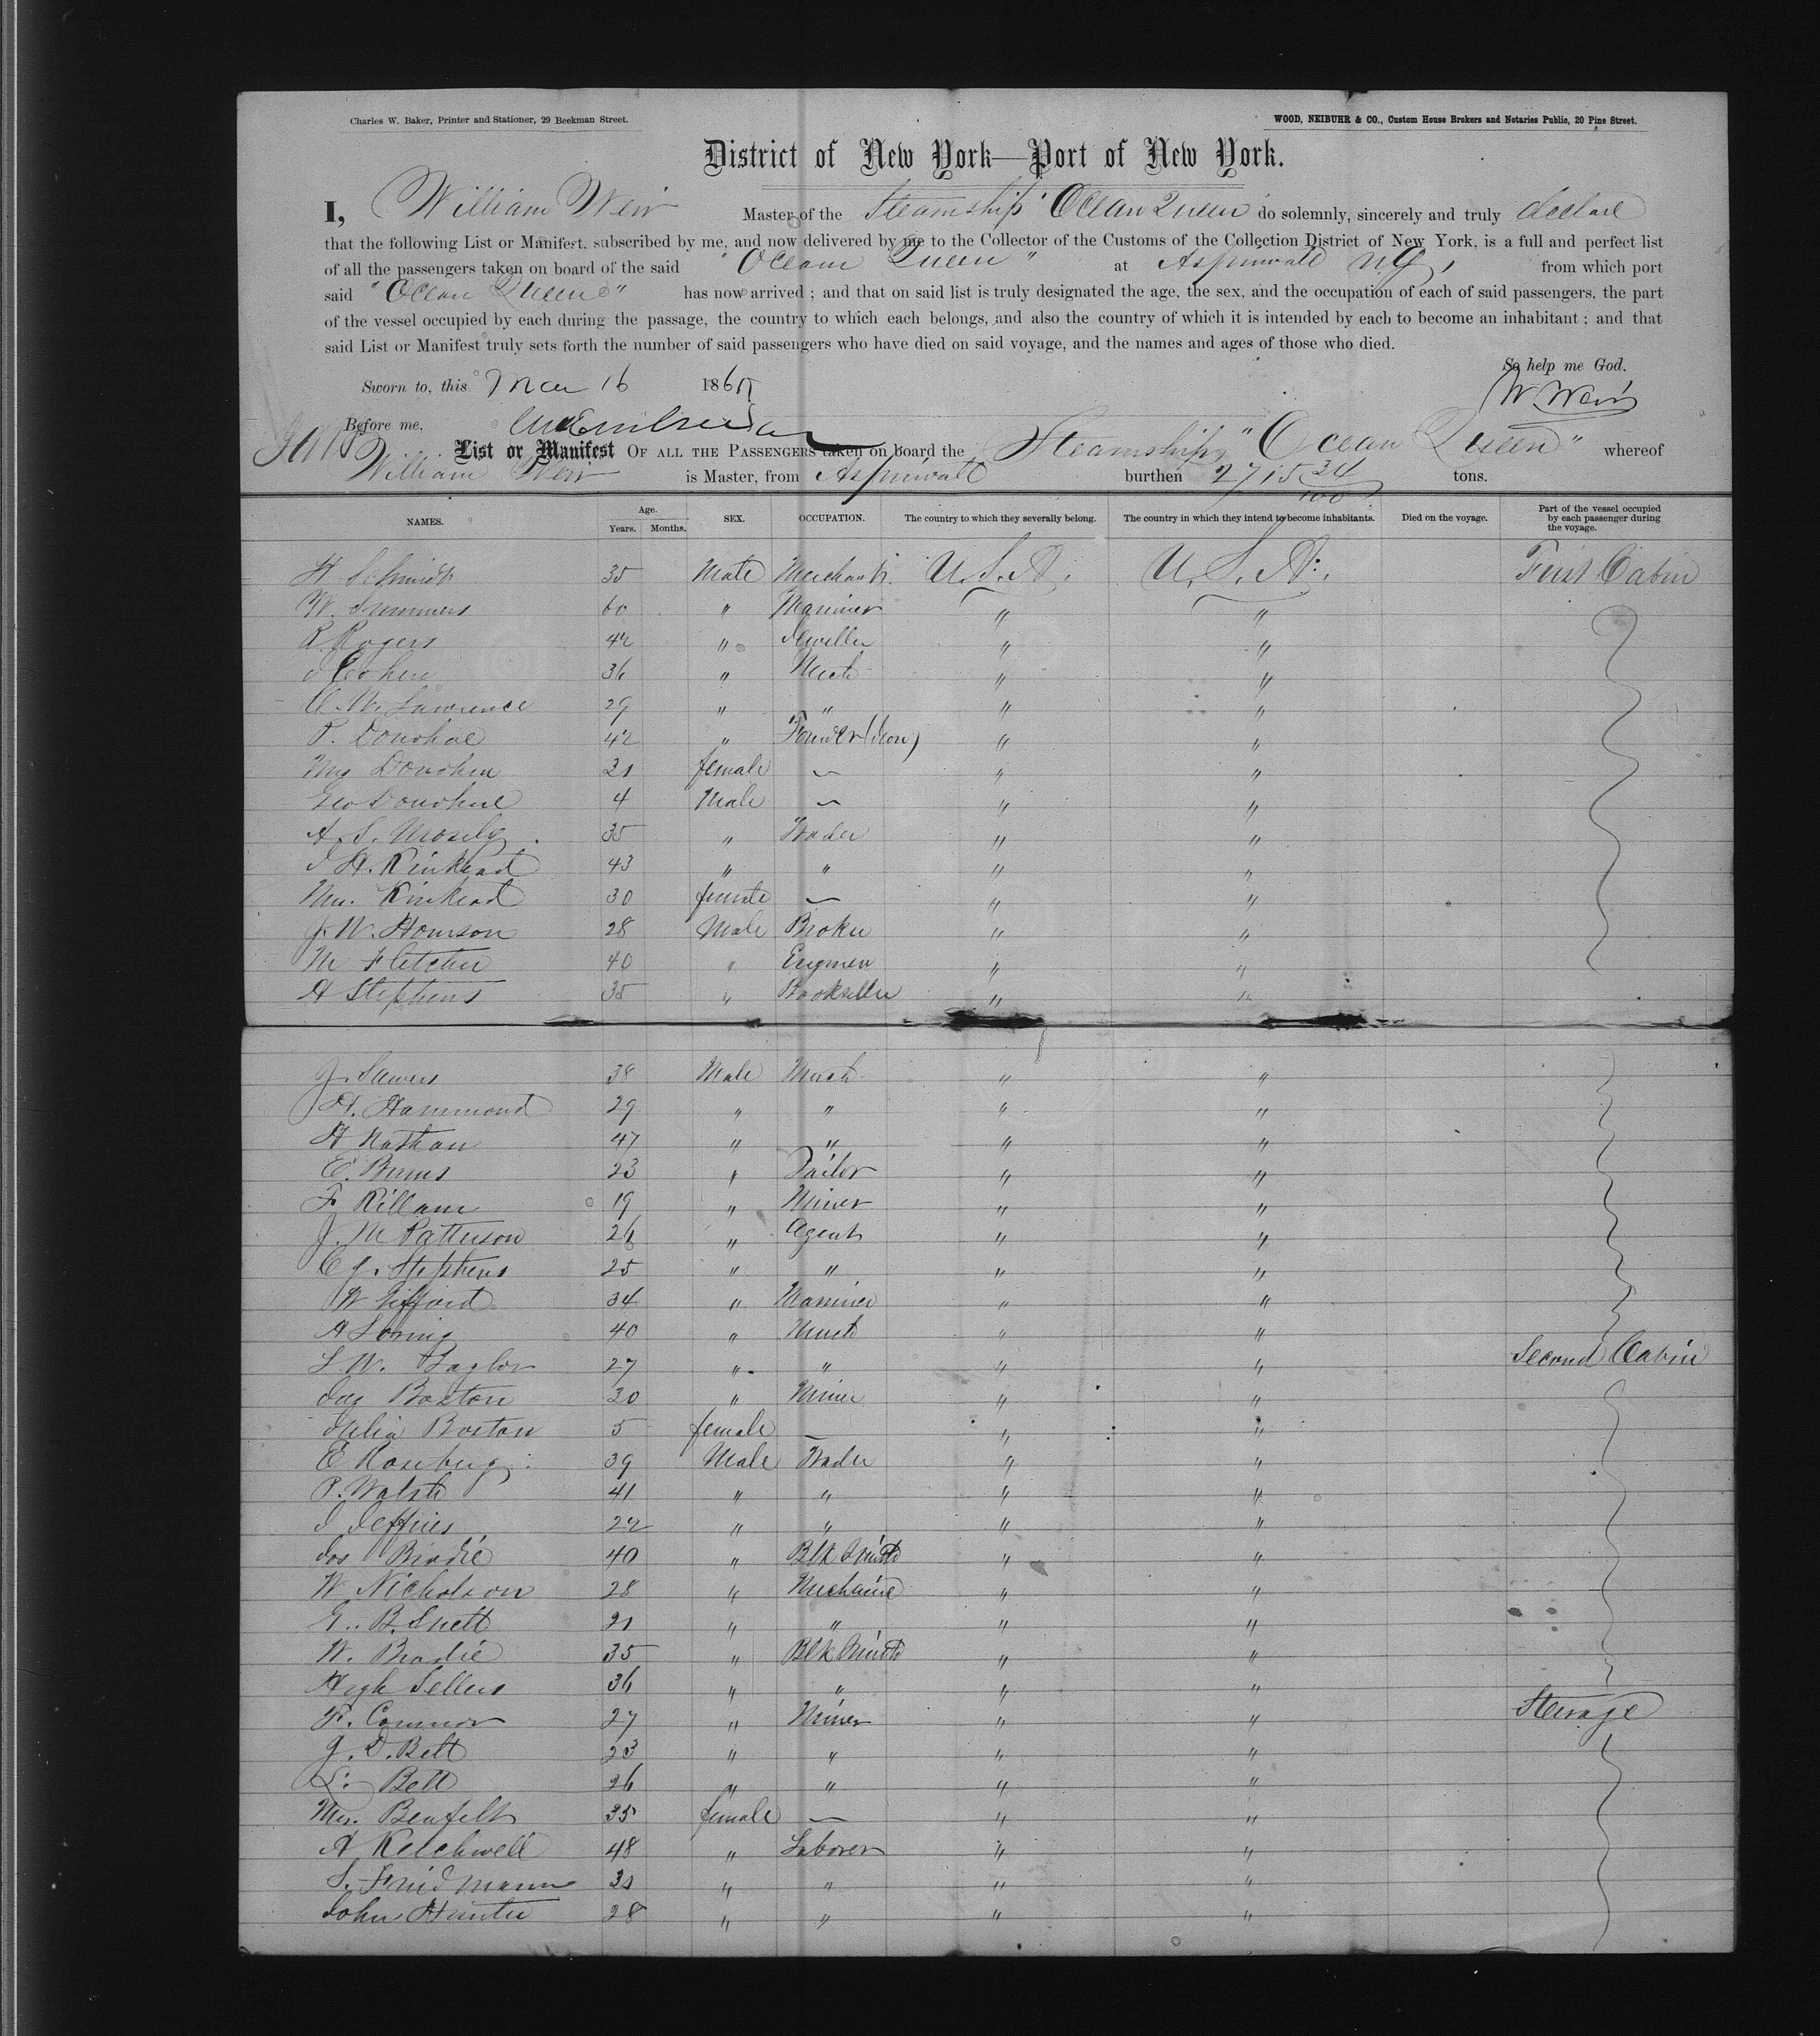 Charles W. Baker, Printer and Stationer, 29 Beekman Street.
WOOD, NEIBUHR & CO., Custom House Brokers and Notaries Public, 20 Pine Street.
District of New York—Port of New York.
I, William Weir Master of the Steamship "Ocean Queen do solemnly, sincerely and truly declare
that the following List or Manifest, subscribed by me, and now delivered by me to the Collector of the Customs of the Collection District of New York, is a full and perfect list
of all the passengers taken on board of the said "Ocean Queen" at Aspinwall N.G, from which port
said "Ocean Queen" has now arrived; and that on said list is truly designated the age, the sex, and the occupation of each of said passengers, the part
of the vessel occupied by each during the passage, the country to which each belongs, and also the country of which it is intended by each to become an inhabitant; and that
said List or Manifest truly sets forth the number of said passengers who have died on said voyage, and the names and ages of those who died.
So help me God.
Sworn to, this Mar 16 186
W. Weir
Before me,
List or Manifest OF ALL THE PASSENGERS taken on board the Steamship "Ocean Queen" whereof
William Weir is Master, from Aspinwall burthen 2715 34/100 tons.
NAMES. Age. Years. Months. SEX. OCCUPATION. The country to which they severally belong. The country in which they intend to become inhabitants. Died on the voyage. Part of the vessel occupied by each passenger during the voyage.
H Schmidt 35 Male Merchant. U.S.A. U.S.A. First Cabin
W. Summers 60 " Mariner " "
R Rogers 42 " Jeweller " "
I Cohen 36 " Merch " "
A. W. Lawrence 29 " " " "
P. Donohue 42 " Founder (Iron) " "
Mrs Donohue 31 female — " "
Geo Donohue 4 Male — " "
A. S. Mosely 35 " Trader " "
J H. Kinkead 43 " " " "
Mrs. Kinkead 30 female — " "
J. W. Homson 28 Male Broker " "
M Fletcher 40 " Engineer " "
A Stephens 35 " Bookseller " "
J. Sawers 38 Male Merch " "
H. Hammond 29 " " " "
H Nathan 47 " " " "
E. Burns 23 " Tailor " "
F Killam 19 " Miner " "
J. M Patterson 26 " Agent " "
C J. Stephens 25 " " " "
W Gifford 34 " Mariner " "
A Loring 40 " Merch " "
L W. Taylor 27 " " " " Second Cabin
Jas Boston 30 " Miner " "
Julia Boston 5 female — " "
E Rosenberg 39 Male Trader " "
P. Walsh 41 " " " "
J Jeffries 22 " " " "
Jos Brodie 40 " Blk Smith " "
W Nicholson 28 " Mechanic " "
G. B. Snell 21 " " " "
W. Brodie 35 " Blk Smith " "
Hugh Sellers 36 " " " "
P. Connor 27 " Miner " " Steerage
J. D. Bell 23 " " " "
L. Bell 26 " " " "
Mrs. Benfelt 35 female — " "
A Ketchwell 48 " Laborer " "
S. Friedmann 31 " " " "
John Hunter 28 " " " "